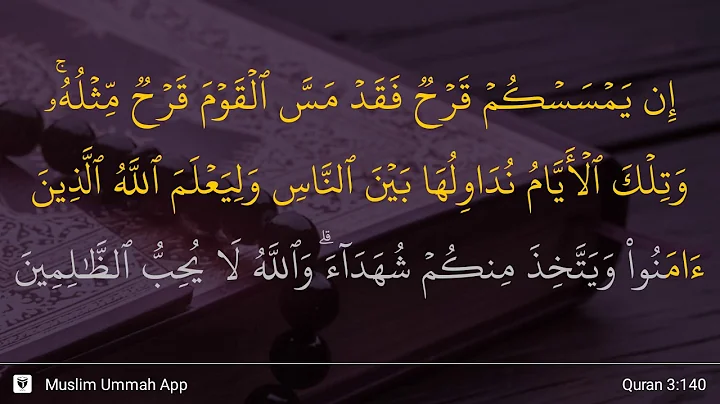 إِن يَمۡسَسۡكُمۡ قَرۡحٞ فَقَدۡ مَسَّ ٱلۡقَوۡمَ قَرۡحٞ مِّثۡلُهُۥۚ
وَتِلۡكَ ٱلۡأَيَّامُ نُدَاوِلُهَا بَيۡنَ ٱلنَّاسِ وَلِيَعۡلَمَ ٱللَّهُ ٱلَّذِينَ
ءَامَنُواْ وَيَتَّخِذَ مِنكُمۡ شُهَدَآءَۗ وَٱللَّهُ لَا يُحِبُّ ٱلظَّٰلِمِينَ
Muslim Ummah App
Quran 3:140